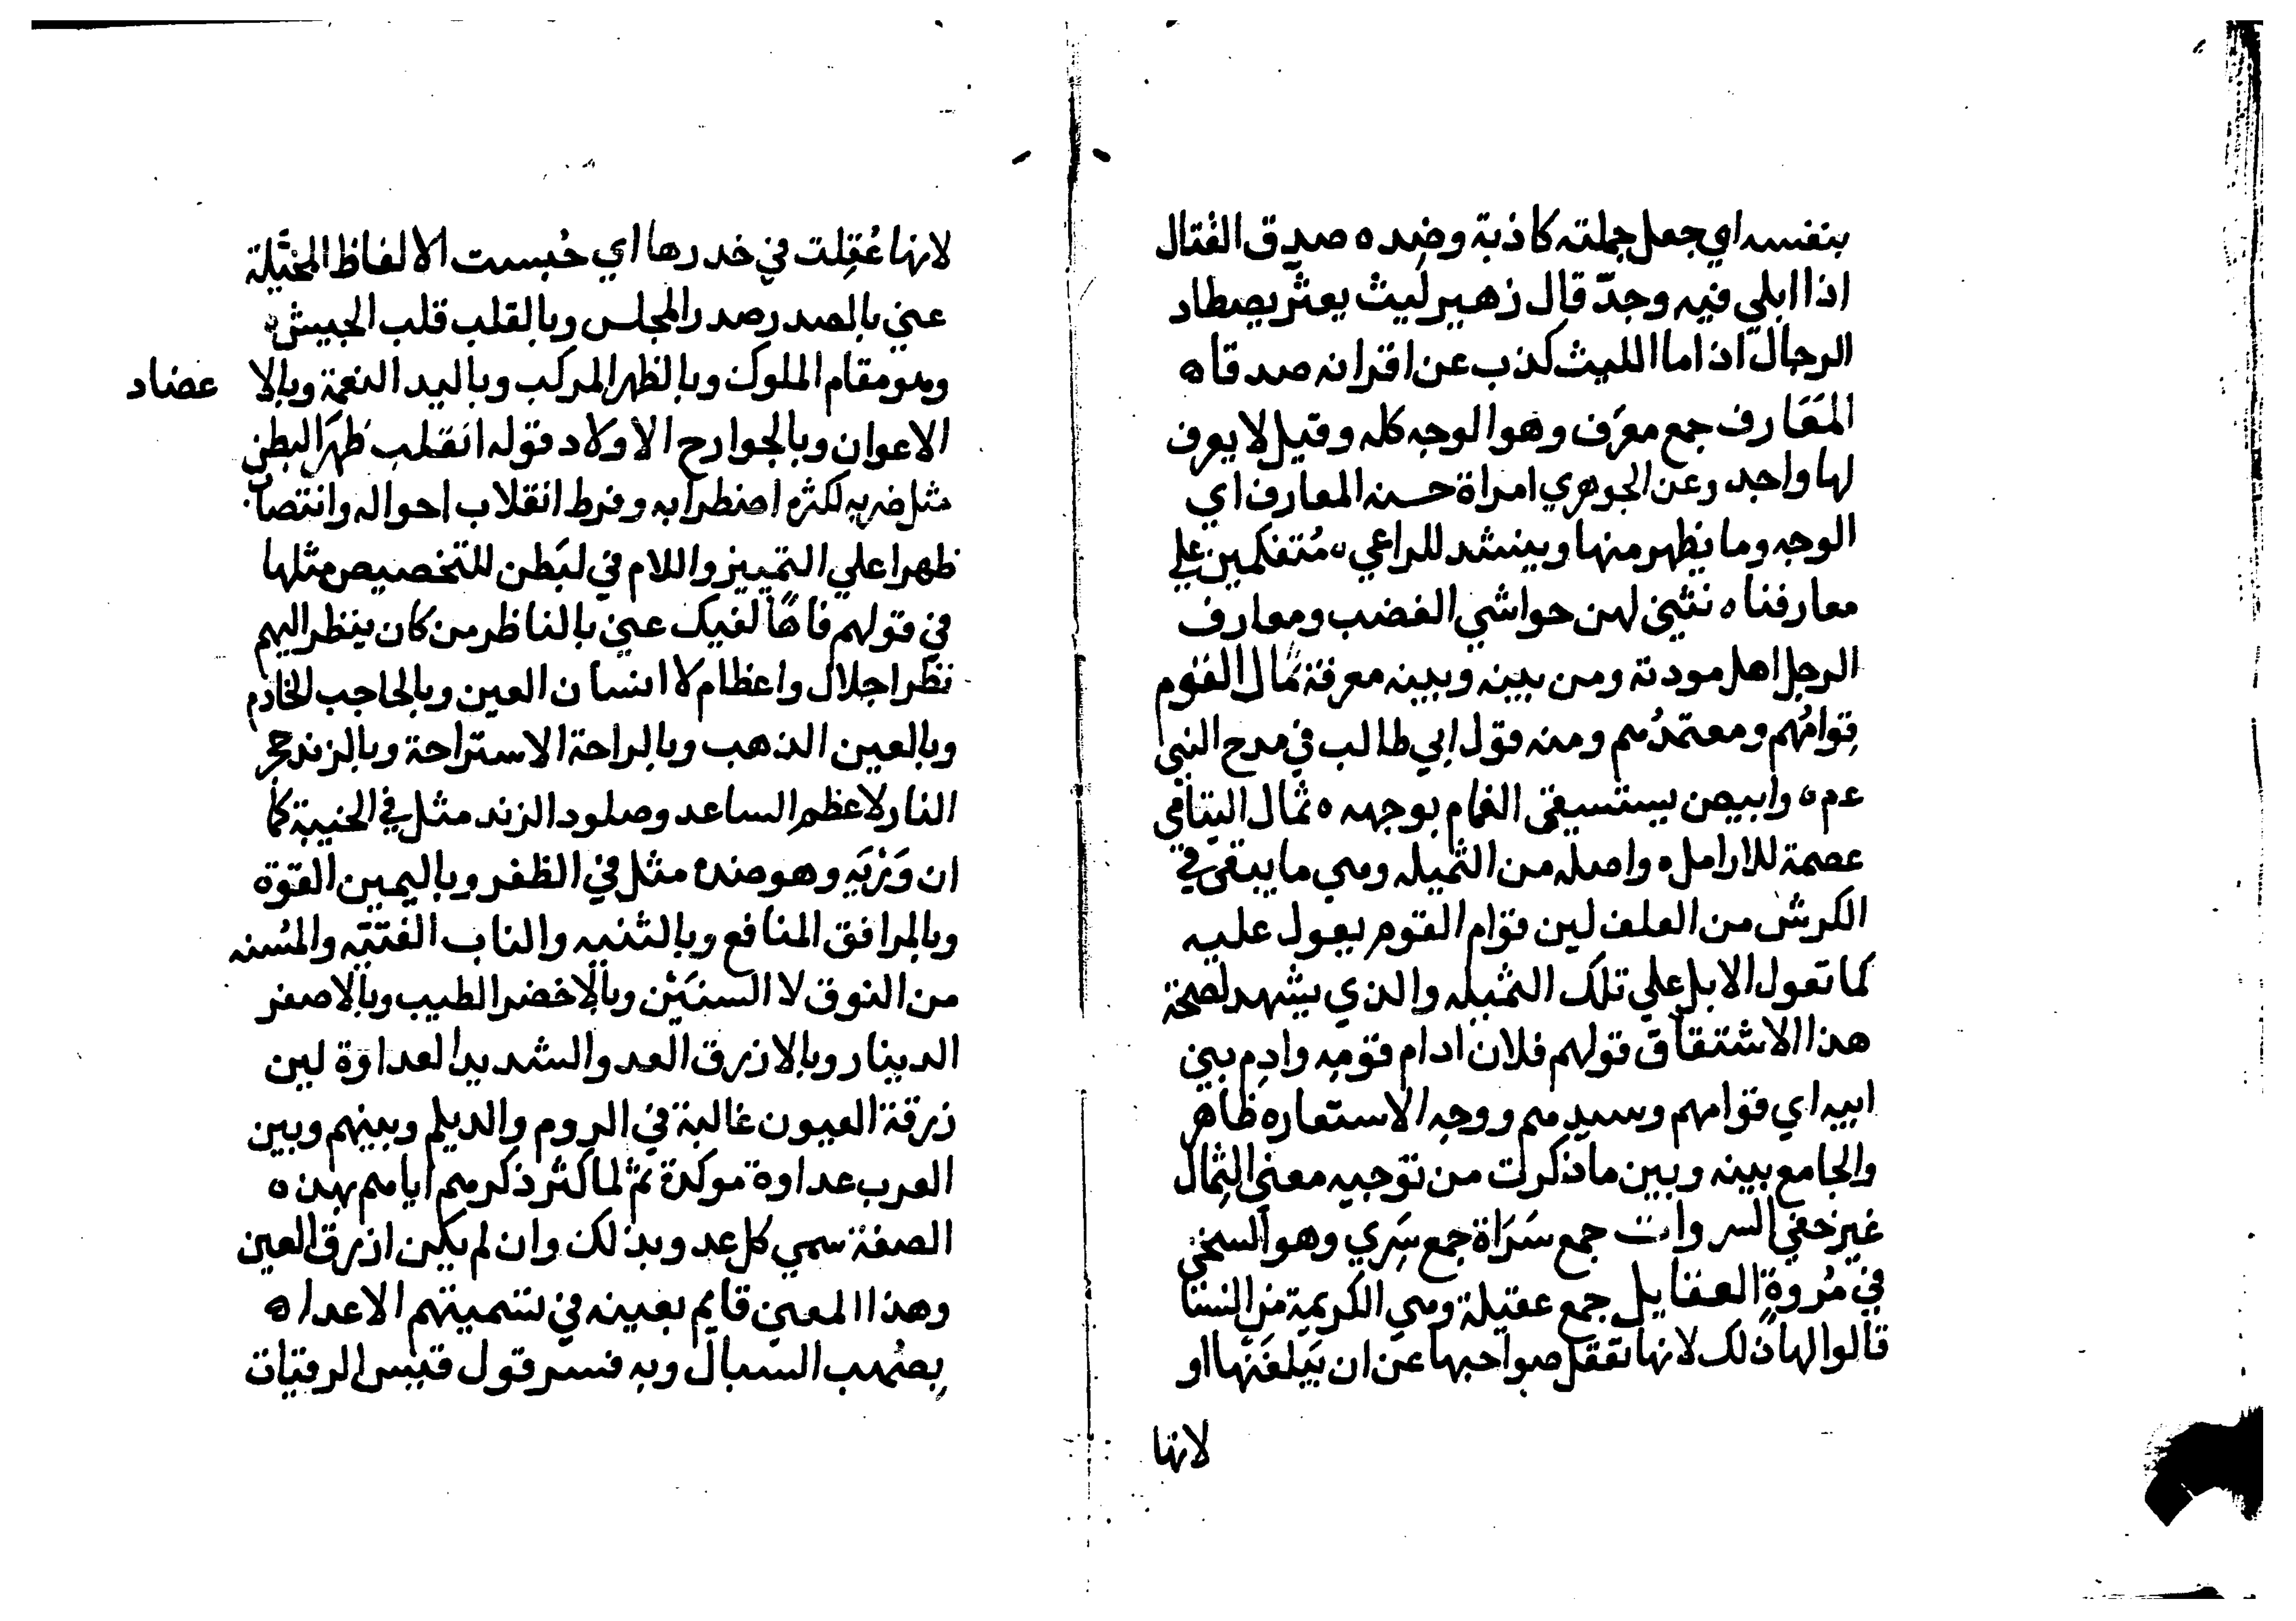 بنفسه اي جعل جملته كاذبة وضده صدق القتال
اذا ابلي فيه وجدّ قال زهير ليث بعثّر يصطاد
الرجال اذا ما الليث كذب عن اقرانه صدقا ه
المَعَارف جمع معرَف وهو الوجه كله وقيل لا يعرف
لها واحد وعن الجوهري امراة حسنه المعارف اي
الوجه وما يظهر منها وينشد للراعي ه مُتَفكمين علي
معارفنا ه نثني لهن حواشي العصب ومعارف
الرجل اهل مودته ومن بينه وبينه معرفة ثمال القوم
قِوامُهم ومعتمدُهم ومنه قول ابي طالب في مدح النبي
عم ه وابيض يستسقي الغمام بوجهه ه ثمال اليتامي
عصمة للارامل ه واصله من الثميله وهي ما يبقي في
الكرش من العلف لين قوام القوم يعول عليه
كما تعول الابل علي تلك الثميله والذي يشهد لصحة
هذا الاشتقاق قولهم فلان ادام قومِه وادِم بين
ابيه اي قوامهم وسيدهم ووجه الاستعاره ظاهر
والجامع بينه وبين ما ذكرت من توجيه معني الثِمال
غير خفي السروات جمع سَرَاة جمع سَرِي وهو السخي
في مُروةٍ العقايل جمع عقيلة وهي الكريمة من النسا
قالوا لها ذلك لانها تعقل صواحبها عن ان يَبلغنَها او
لانها
لانها عُقِلت في خدرها اي حُبست الالفاظ المخيَّلة
عني بالصدر صدر المجلس وبالقلب قلب الجيش
وهو مقام الملوك وبالظهر المركب وباليد النعمة وبالا عضاد
الاعوان وبالجوارح الاولاد قوله انقلب ظهرَا لبطن
مثل ضربه لكثرة اضطرابه وفرط انقلاب احواله وانتصاب
ظهرا علي التمييز واللام في لبَطن للتخصيص مثلها
في قولهم فاهًا لفيك عني بالناظر من كان ينظر اليهم
نظر اجلال واعظام لا انسان العين وبالحاجب الخادم
وبالعين الذهب وبالراحة الاستراحة وبالزند حجر
النار لا عظم الساعد وصلود الزند مثل في الخيبة كما
ان وَرْيَه وهو ضده مثل في الظفر وباليمين القوة
وبالمرافق المنافع وبالثنيه والناب الفتيّه والمُسنه
من النوق لا السنيَن وبالاخضر الطيب وبالاصفر
الدينار وبالازرق العدو الشديد العداوة لين
زرقة العيون غالبة في الروم والديلم وبينهم وبين
العرب عداوة موكدة ثم لما كثر ذكرهم اياهم بهذه
الصفة سمي كل عدو بذلك وان لم يكن ازرق العين
وهذا المعني قايم بعينه في تسميتهم الاعدا ه
بصُهب السبال وبه فسر قول قيس الرقيات